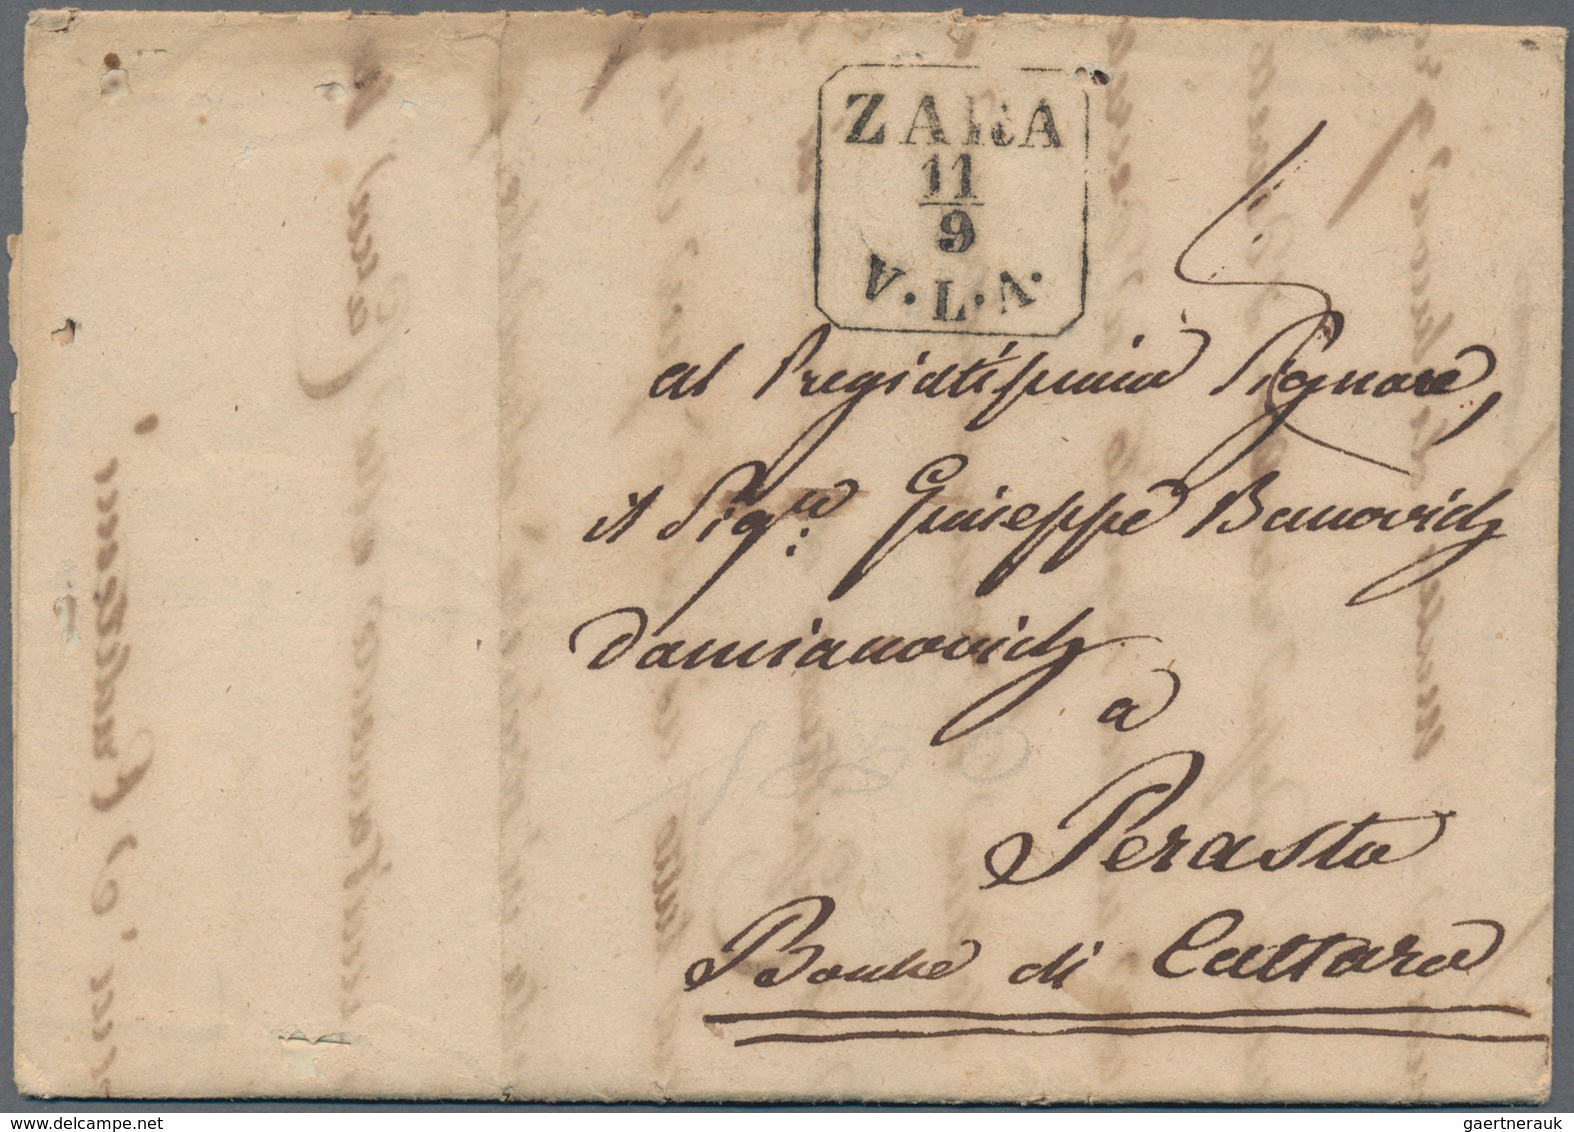 ZARA
11
9
V. L. A.
al Pregiatissimo Signore,
il Sigre: Giuseppe Banovich
Damianovich
a
Perasto
Bocche di Cattaro
www.delcampe.net
gaertnerauk